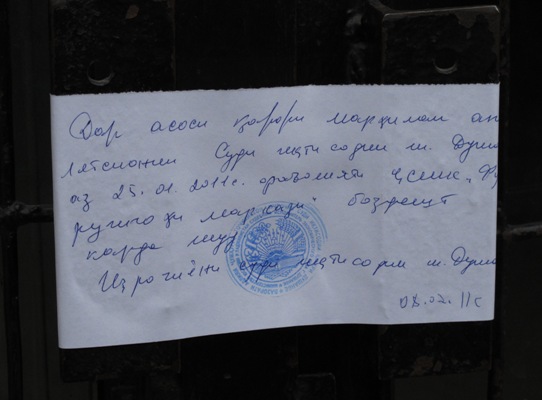 Дар асоси қарори марҳилаи ап
лятсионии Суди иқтисодии ш. Душа
аз 25.01.2011с. фаъолияти ҶСШК "Фу
рушгоҳи Марказӣ" боздошт
карда шуд
Иҷрочиёни суди иқтисодии ш. Душа
08.02.11с